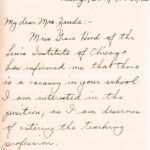 My dear Mrs Zande:-
Miss Grace Hood of the
Lewis Institute of Chicago
has informed me that there
is a vacancy in your school
I am interested in the
position, as I am desirous
of entering the teaching
profession.